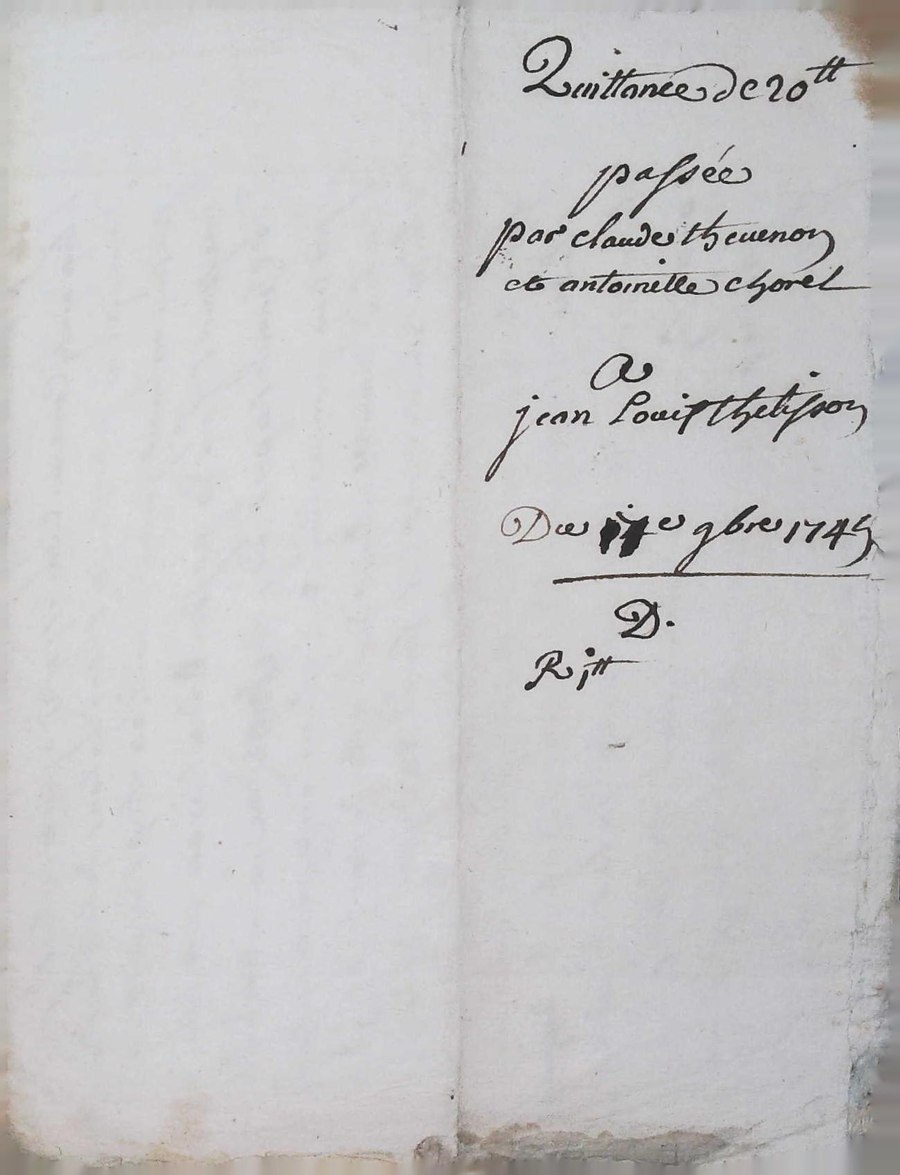 Quittance de 20tt
passée
par claude thevenon
et antoinette chorel
A
jean Louis thelisson
Du e 9bre 174
D.
R jtt